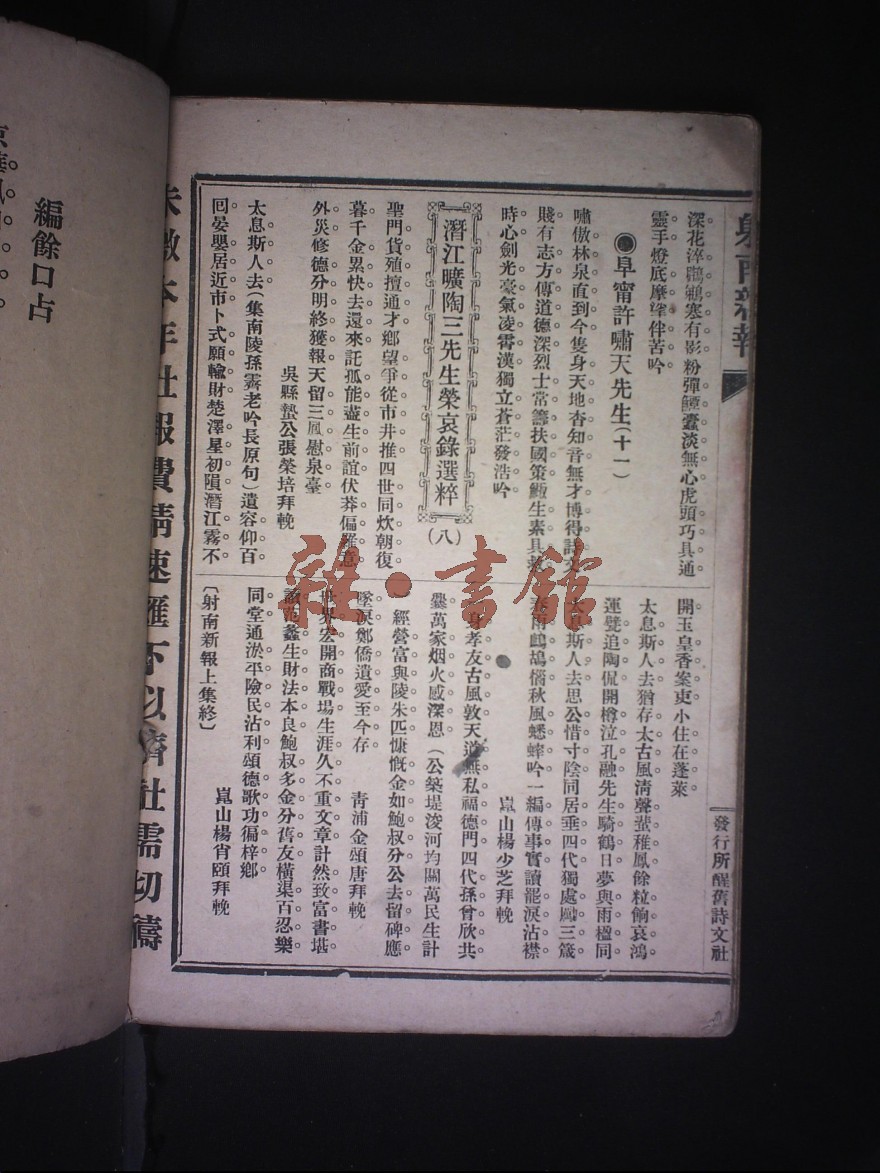 射南新報
發行所醒舊詩文社
深花淬鸊鵜寒有影粉彈蠹淡無心虎頭巧具通
靈手燈底摩挲伴苦吟
●阜甯許嘯天先生(十一)
嘯傲林泉直到今隻身天地杳知音無才博得詩文
賤有志方傳道德深烈士常籌扶國策鯫生素具救
時心劍光豪氣凌霄漢獨立蒼茫發浩吟
潛江曠陶三先生榮哀錄選粹
(八)
聖門貨殖擅通才鄉望爭從市井推四世同炊朝復
暮千金累快去還來託孤能盡生前誼伏莽偏罹意
外災修德分明終獲報天留三鳳慰泉臺
吳縣蟄公張榮培拜輓
太息斯人去(集南陵孫霽老吟長原句)遺容仰百
回晏嬰居近市卜式願輸財楚澤星初隕潛江霧不
開玉皇香案吏小住在蓬萊
太息斯人去猶存太古風清聲蜚稚鳳餘粒餉哀鴻
運甓追陶侃開樽泣孔融先生騎鶴日夢與雨楹同
太息斯人去思公惜寸陰同居垂四代獨處勵三箴
春雨鷓鴣惱秋風蟋蟀吟一編傳事實讀罷淚沾襟
崑山楊少芝拜輓
身孝友古風敦天道無私福德門四代孫曾欣共
爨萬家烟火感深恩(公築堤浚河均關萬民生計
)經營富與陵朱匹慷慨金如鮑叔分公去留碑應
墜淚鄭僑遺愛至今存
青浦金頌唐拜輓
世界宏開商戰場生涯久不重文章計然致富書堪
讀范蠡生財法本良鮑叔多金分舊友橫渠百忍樂
同堂通淤平險民沾利頌德歌功徧梓鄉
崑山楊肖頤拜輓
〔射南新報上集終〕
未繳本年社報費請速匯下以濟社需切禱
編餘口占
雜·書館